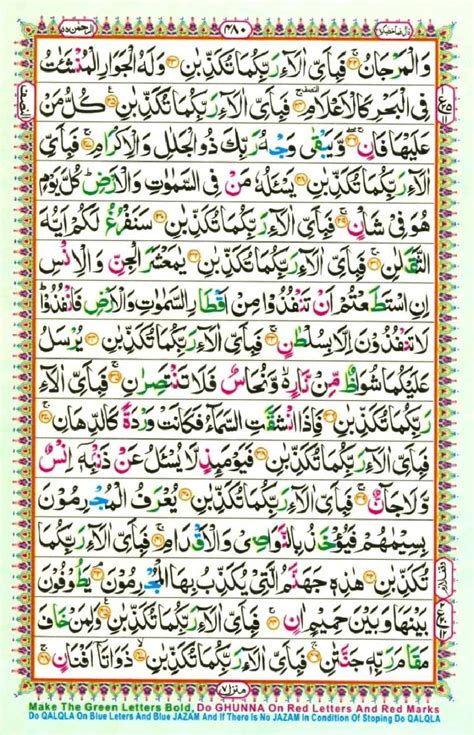 الرحمن ٥٥ ۴۸۰ قال فما خطبكم
وَالْمَرْجَانُ ۚ فَبِاَيِّ اٰلَآءِ رَبِّكُمَا تُكَذِّبٰنِ وَلَهُ الْجَوَارِ الْمُنْشَئٰتُ
فِى الْبَحْرِ كَالْاَعْلَامِ ۚ فَبِاَيِّ اٰلَآءِ رَبِّكُمَا تُكَذِّبٰنِ كُلُّ مَنْ
عَلَيْهَا فَانٍ ۚ وَّيَبْقٰى وَجْهُ رَبِّكَ ذُو الْجَلٰلِ وَالْاِكْرَامِ ۚ فَبِاَيِّ
اٰلَآءِ رَبِّكُمَا تُكَذِّبٰنِ يَسْـَٔلُهٗ مَنْ فِى السَّمٰوٰتِ وَالْاَرْضِ ؕ كُلَّ يَوْمٍ
هُوَ فِىْ شَاْنٍ ۚ فَبِاَيِّ اٰلَآءِ رَبِّكُمَا تُكَذِّبٰنِ سَنَفْرُغُ لَكُمْ اَيُّهَ
الثَّقَلٰنِ ۚ فَبِاَيِّ اٰلَآءِ رَبِّكُمَا تُكَذِّبٰنِ يٰمَعْشَرَ الْجِنِّ وَالْاِنْسِ
اِنِ اسْتَطَعْتُمْ اَنْ تَنْفُذُوْا مِنْ اَقْطَارِ السَّمٰوٰتِ وَالْاَرْضِ فَانْفُذُوْا ؕ
لَا تَنْفُذُوْنَ اِلَّا بِسُلْطٰنٍ ۚ فَبِاَيِّ اٰلَآءِ رَبِّكُمَا تُكَذِّبٰنِ يُرْسَلُ
عَلَيْكُمَا شُوَاظٌ مِّنْ نَّارٍ ۙ وَّنُحَاسٌ فَلَا تَنْتَصِرٰنِ ۚ فَبِاَيِّ اٰلَآءِ
رَبِّكُمَا تُكَذِّبٰنِ فَاِذَا انْشَقَّتِ السَّمَآءُ فَكَانَتْ وَرْدَةً كَالدِّهَانِ ۚ
فَبِاَيِّ اٰلَآءِ رَبِّكُمَا تُكَذِّبٰنِ فَيَوْمَئِذٍ لَّا يُسْـَٔلُ عَنْ ذَنْۢبِهٖٓ اِنْسٌ
وَّلَا جَآنٌّ ۚ فَبِاَيِّ اٰلَآءِ رَبِّكُمَا تُكَذِّبٰنِ يُعْرَفُ الْمُجْرِمُوْنَ
بِسِيْمٰهُمْ فَيُؤْخَذُ بِالنَّوَاصِىْ وَالْاَقْدَامِ ۚ فَبِاَيِّ اٰلَآءِ رَبِّكُمَا
تُكَذِّبٰنِ هٰذِهٖ جَهَنَّمُ الَّتِىْ يُكَذِّبُ بِهَا الْمُجْرِمُوْنَ ۘ يَطُوْفُوْنَ
بَيْنَهَا وَبَيْنَ حَمِيْمٍ اٰنٍ ۚ فَبِاَيِّ اٰلَآءِ رَبِّكُمَا تُكَذِّبٰنِ وَلِمَنْ خَافَ
مَقَامَ رَبِّهٖ جَنَّتٰنِ ۚ فَبِاَيِّ اٰلَآءِ رَبِّكُمَا تُكَذِّبٰنِ ذَوَاتَآ اَفْنَانٍ ۚ
منزل ۷
Make The Green Letters Bold, Do GHUNNA On Red Letters And Red Marks
Do QALQLA On Blue Leters And Blue JAZAM And If There Is No JAZAM In Condition Of Stoping Do QALQLA